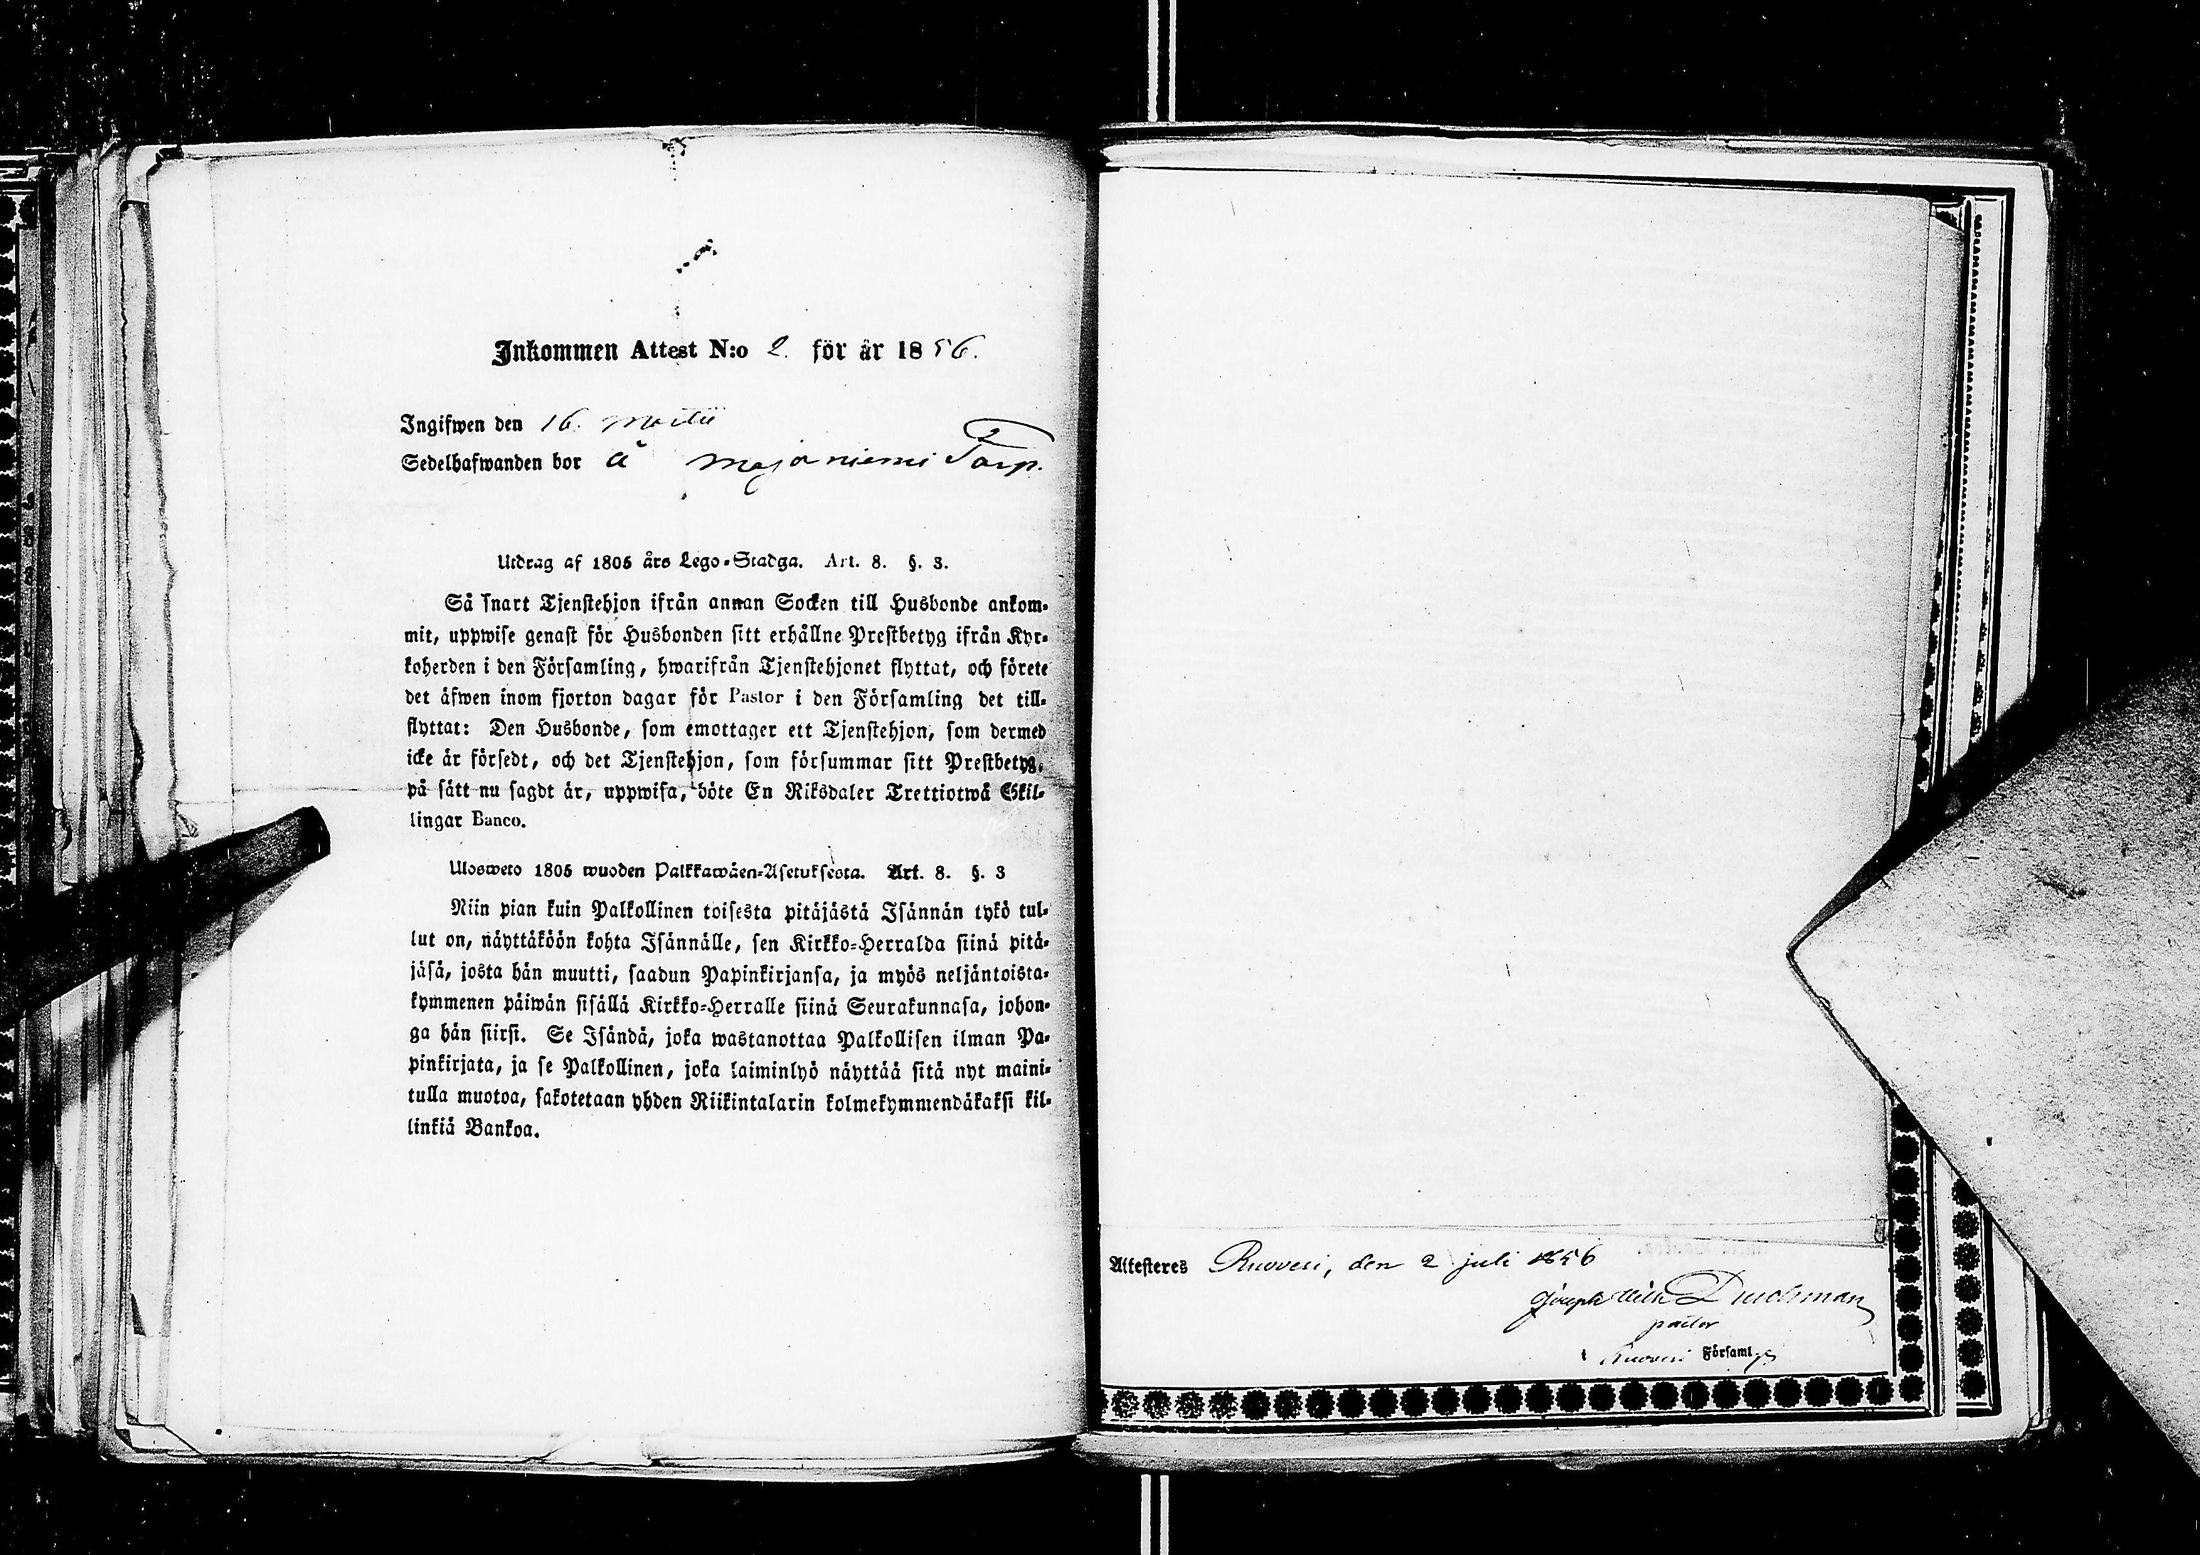 Inkommen Attest N:o 2. för år 1856.
Ingifwen den 16. Martii
Sedelhafwanden bor å Majaniemi Torp.
Utdrag af 1805 års Lego-Stadga. Art. 8. §. 3.
Så snart Tjenstehjon ifrån annan Socken till Husbonde ankom-
mit, uppwise genast för Husbonden sitt erhållne Prestbetyg ifrån Kyr-
koherden i den Församling, hwarifrån Tjenstehjonet flyttat, och förete
det äfwen inom fjorton dagar för Pastor i den Församling det till-
flyttat: Den Husbonde, som emottager ett Tjenstehjon, som dermed
icke är försedt, och det Tjenstehjon, som försummar sitt Prestbetyg,
på sätt nu sagdt är, uppwisa, böte En Riksdaler Trettiotwå Skil-
lingar Banco.
Ulosweto 1805 wuoden Palkkawäen-Asetuksesta. Art. 8. §. 3
Niin pian kuin Palkollinen toisesta pitäjästä Isännän tykö tul-
lut on, näyttäköön kohta Isännälle, sen Kirkko-Herralda siinä pitä-
jäsä, josta hän muutti, saadun Papinkirjansa, ja myös neljäntoista-
kymmenen päiwän sisällä Kirkko-Herralle siinä Seurakunnasa, johon-
ga hän siirsi. Se Isändä, joka wastanottaa Palkollisen ilman Pa-
pinkirjata, ja se Palkollinen, joka laiminlyö näyttää sitä nyt maini-
tulla muotoa, sakotetaan yhden Riikintalarin kolmekymmendäkaksi kil-
linkiä Bankoa.
Attesteres Ruovesi, den 2 juli 1856
Joseph Wilh Durchman
pastor
i Ruovesi Församl